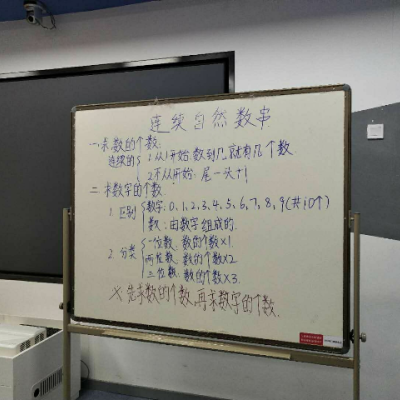 连续自然数串
一.求数的个数.
连续的{1.从1开始:数到几,就有几个数
2.不从1开始:尾-头+1
二.求数字的个数.
1.区别{数字:0、1、2、3、4、5、6、7、8、9(共10个)
数:由数字组成的.
2.分类{一位数:数的个数×1.
两位数:数的个数×2
三位数:数的个数×3.
※先求数的个数,再求数字的个数.